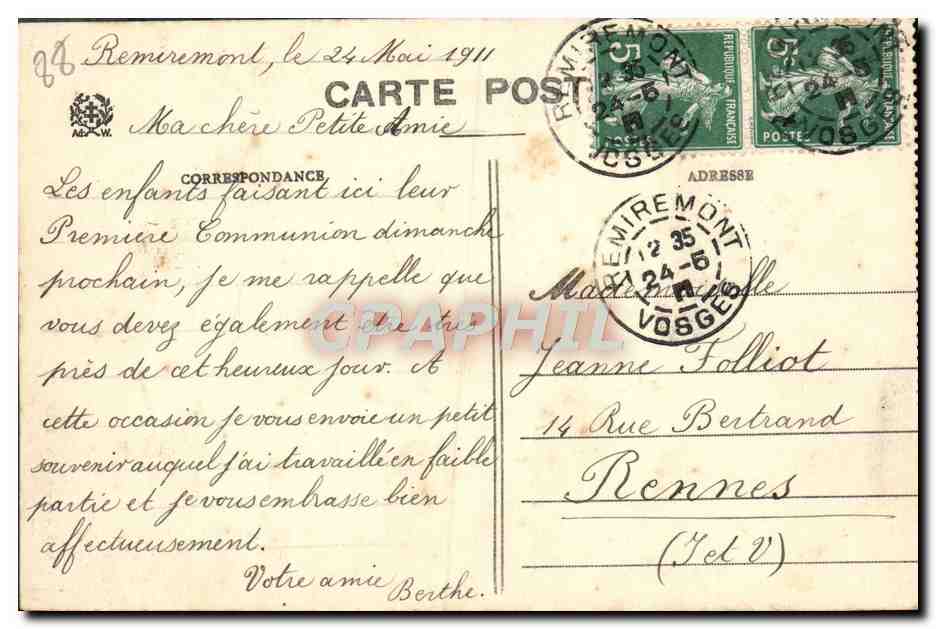 88
Remiremont, le 24 Mai 1911
CARTE POST
Ad. W.
Ma chère Petite Amie
CORRESPONDANCE
Les enfants faisant ici leur
Première Communion dimanche
prochain, je me rappelle que
vous devez également être très
près de cet heureux jour. A
cette occasion je vous envoie un petit
souvenir auquel j'ai travaillé en faible
partie et je vous embrasse bien
affectueusement.
Votre amie Berthe.
5c
REPUBLIQUE FRANÇAISE
POSTES
5c
REPUBLIQUE FRANÇAISE
POSTES
REMIREMONT
12 35
24-5
11
VOSGES
35
24-5
VOSGES
ADRESSE
REMIREMONT
12 35
24-5
11
VOSGES
Mademoiselle
Jeanne Folliot
14 Rue Bertrand
Rennes
(I et V)
CPAPHIL